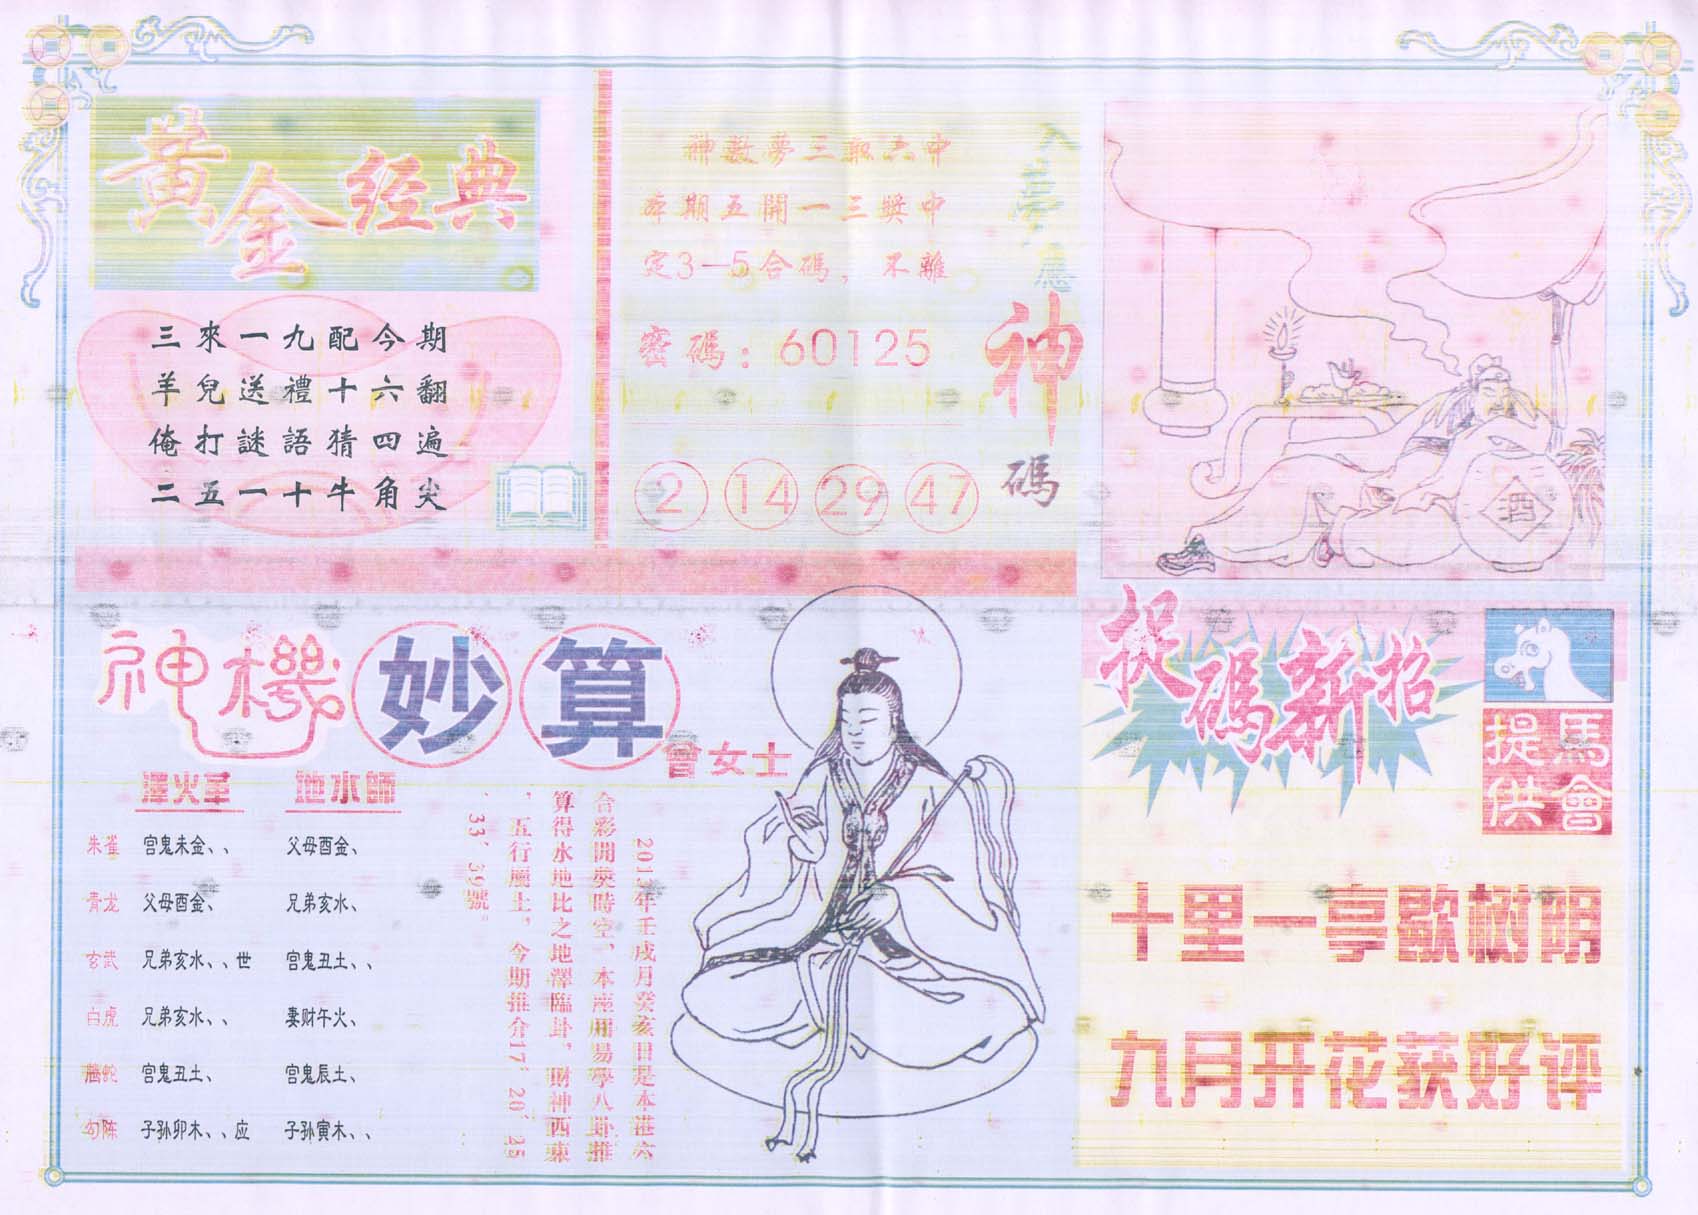 黃金經典
三來一九配今期
羊兒送禮十六翻
俺打謎語猜四遍
二五一十牛角尖
神數夢三取六中
本期五開一三獎中
定3—5合碼，不離
密碼：60125
2 14 29 47
入夢應
神碼
酒
神機妙算
曾女士
澤火革 地水師
朱雀 官鬼未金、、 父母酉金、
青龙 父母酉金、 兄弟亥水、
玄武 兄弟亥水、、世 官鬼丑土、、
白虎 兄弟亥水、、 妻财午火、
騰蛇 官鬼丑土、 官鬼辰土、
勾陈 子孙卯木、、应 子孙寅木、、
年壬戌月癸亥日是本港六
合彩開獎時空，本座用易學八卦推
算得水地比之地澤臨卦，財神西東
，五行属土，今期推介17、20、25
、33、39號。
捉碼新招
馬會提供
十里一亭歇树明
九月开花获好评